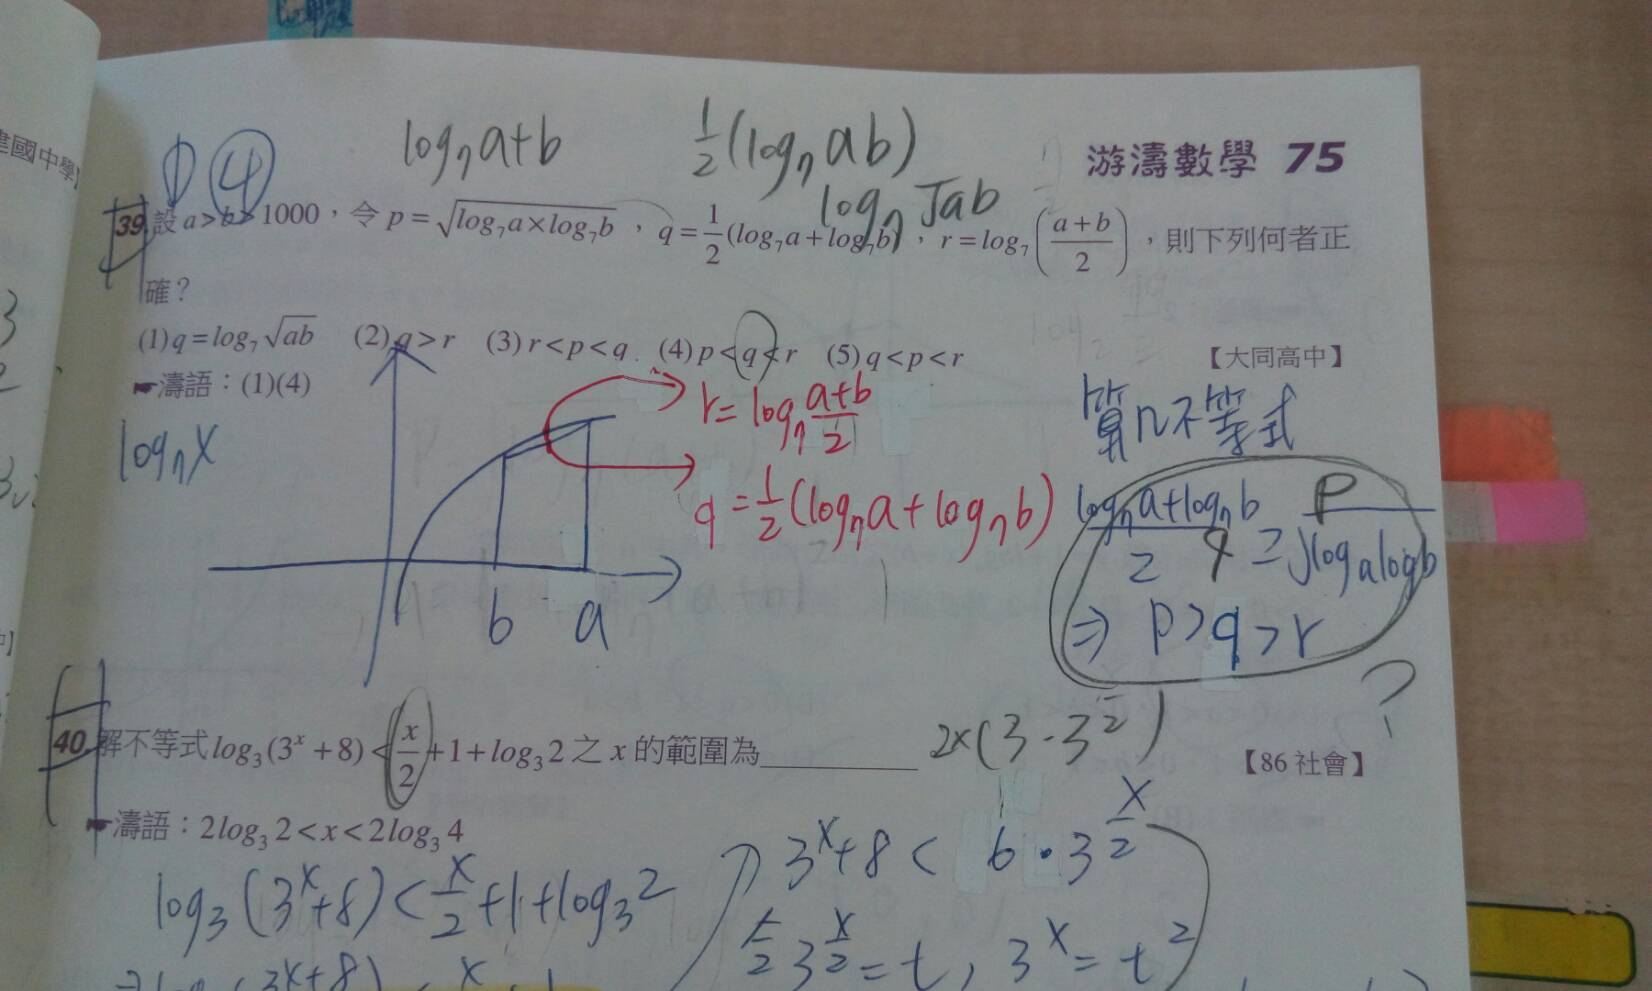 建國中學】
① ④ log₇a+b ½(log₇ab)
log₇√ab
游濤數學 75
39 設 a>b>1000，令 p=√(log₇a×log₇b)，q=1/2(log₇a+log₇b)，r=log₇((a+b)/2)，則下列何者正
確？
(1) q=log₇√ab (2) q>r (3) r<p<q (4) p<q<r (5) q<p<r 【大同高中】
濤語：(1)(4)
log₇x
r=log₇ (a+b)/2
q=1/2(log₇a+log₇b)
b a
算几不等式
(log₇a+log₇b)/2 q ≥ √logalogb p
⇒ p>q>r
?
40 解不等式 log₃(3ˣ+8)<x/2+1+log₃2 之 x 的範圍為________ 【86 社會】
濤語：2log₃2<x<2log₃4
log₃(3ˣ+8)<x/2+1+log₃2
3ˣ+8<6·3^(x/2)
3^(x/2)=t, 3ˣ=t²